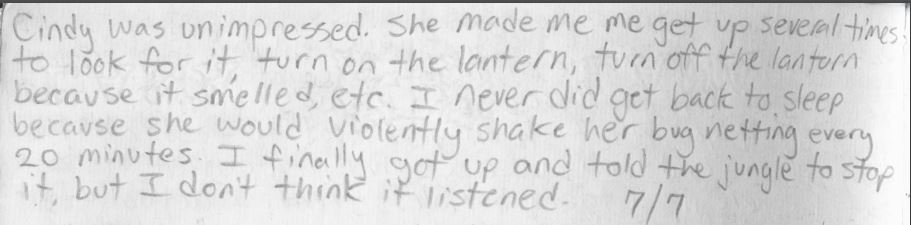 Cindy was unimpressed. She made me me get up several times
to look for it, turn on the lantern, turn off the lanturn
because it smelled, etc. I never did get back to sleep
because she would violently shake her bug netting every
20 minutes. I finally got up and told the jungle to stop
it, but I don't think it listened. 7/7